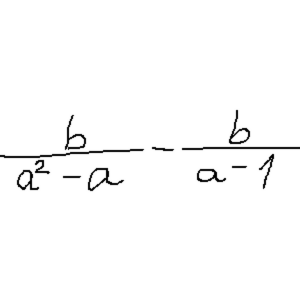 b/(a² - a) - b/(a - 1)